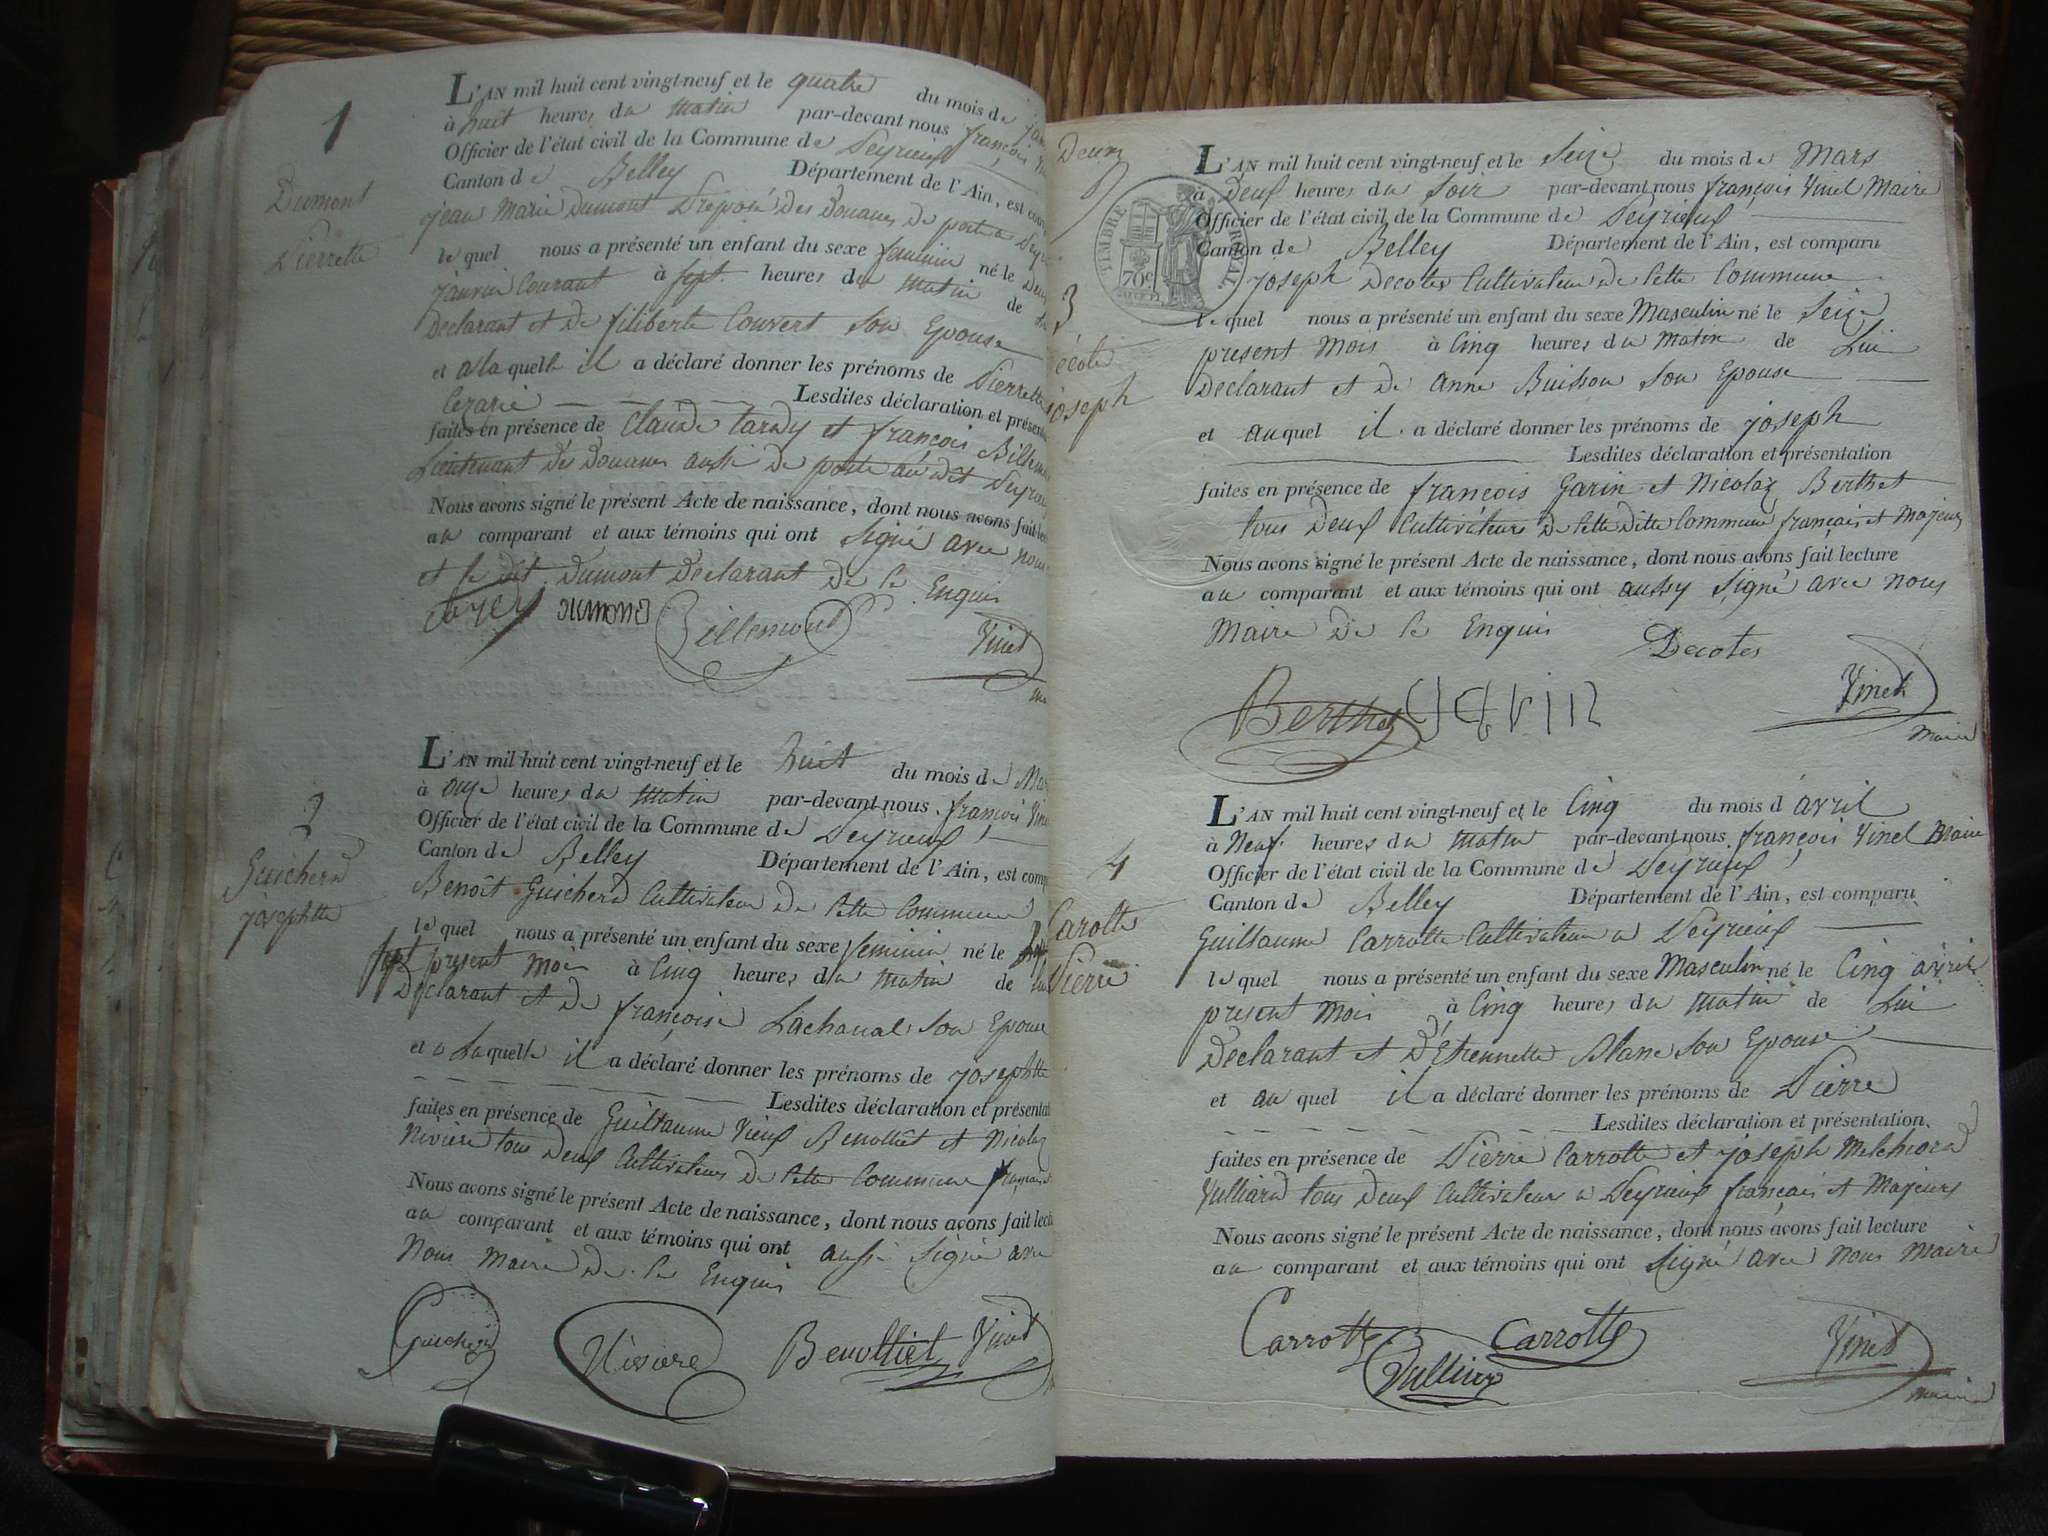 1
Dumont
Pierrette
L'AN mil huit cent vingt-neuf et le quatre du mois de
à huit heures du matin par-devant nous françois
Officier de l'état civil de la Commune de Peyrieux
Canton de Belley Département de l'Ain, est
jean Marie Dumont Préposé des Douanes de poste a
le quel nous a présenté un enfant du sexe feminin né le Deux
janvier Courant à sept heures du matin de
Declarant et de filiberte Couvert son Epouse
et a la quelle il a déclaré donner les prénoms de Pierrette
Cezarie Lesdites déclaration et
faites en présence de Claude tardy et françois
Lieutenant des Douanes aussi de poste au dit
Nous avons signé le présent Acte de naissance, dont nous avons fait
au comparant et aux témoins qui ont signé avec nous
et le dit Dumont Declarant De ce Enquis
DUMOND Billemont Vinet
2
Guicherd
josephtte
L'AN mil huit cent vingt-neuf et le huit du mois de
à onze heures du matin par-devant nous françois
Officier de l'état civil de la Commune de Peyrieux
Canton de Belley Département de l'Ain, est
Benoit Guicherd Cultivateur De Cette Commune
le quel nous a présenté un enfant du sexe feminin né le
sept present mois à Cinq heures du matin de
Declarant et de françoise Lachanal son Epouse
et a laquelle il a déclaré donner les prénoms de josephtte
Lesdites déclaration et
faites en présence de Guillaume Vieux Benolliet et Nicolaz
Rivière tous Deux Cultivateurs De Cette Commune
Nous avons signé le présent Acte de naissance, dont nous avons fait
au comparant et aux témoins qui ont aussi signé avec
Nous maire De ce Enquis
Guicherd Rivière Benolliet Vinet
Deux
3
joseph
TIMBRE ROYAL
70c
L'AN mil huit cent vingt-neuf et le seize du mois de Mars
à Deux heures du soir par-devant nous françois Vinet Maire
Officier de l'état civil de la Commune de Peyrieux
Canton de Belley Département de l'Ain, est comparu
joseph Decotes Cultivateur de Cette Commune
le quel nous a présenté un enfant du sexe Masculin né le seize
present mois à Cinq heures du matin de Lui
Declarant et de anne Buisson son Epouse
et auquel il a déclaré donner les prénoms de joseph
Lesdites déclaration et présentation
faites en présence de françois Garin et Nicolaz Berthet
tous Deux Cultivateurs De Cette Ditte Commune français et Majeurs
Nous avons signé le présent Acte de naissance, dont nous avons fait lecture
au comparant et aux témoins qui ont aussy signé avec nous
Maire De ce Enquis Decotes
Berthet Vinet
maire
4
Carotte
Pierre
L'AN mil huit cent vingt-neuf et le Cinq du mois d avril
à Neuf heures du matin par-devant nous françois Vinet Maire
Officier de l'état civil de la Commune de Peyrieux
Canton de Belley Département de l'Ain, est comparu
Guillaume Carrotte Cultivateur a Peyrieux
le quel nous a présenté un enfant du sexe Masculin né le Cinq avril
present mois à Cinq heures du matin de Lui
Declarant et d'Etiennette Blanc son Epouse
et au quel il a déclaré donner les prénoms de Pierre
Lesdites déclaration et présentation
faites en présence de Pierre Carrotte et joseph Melchiord
Vulliard tous Deux Cultivateurs a Peyrieux français et Majeurs
Nous avons signé le présent Acte de naissance, dont nous avons fait lecture
au comparant et aux témoins qui ont signé avec nous maire
Carrotte Carrotte Vinet
maire